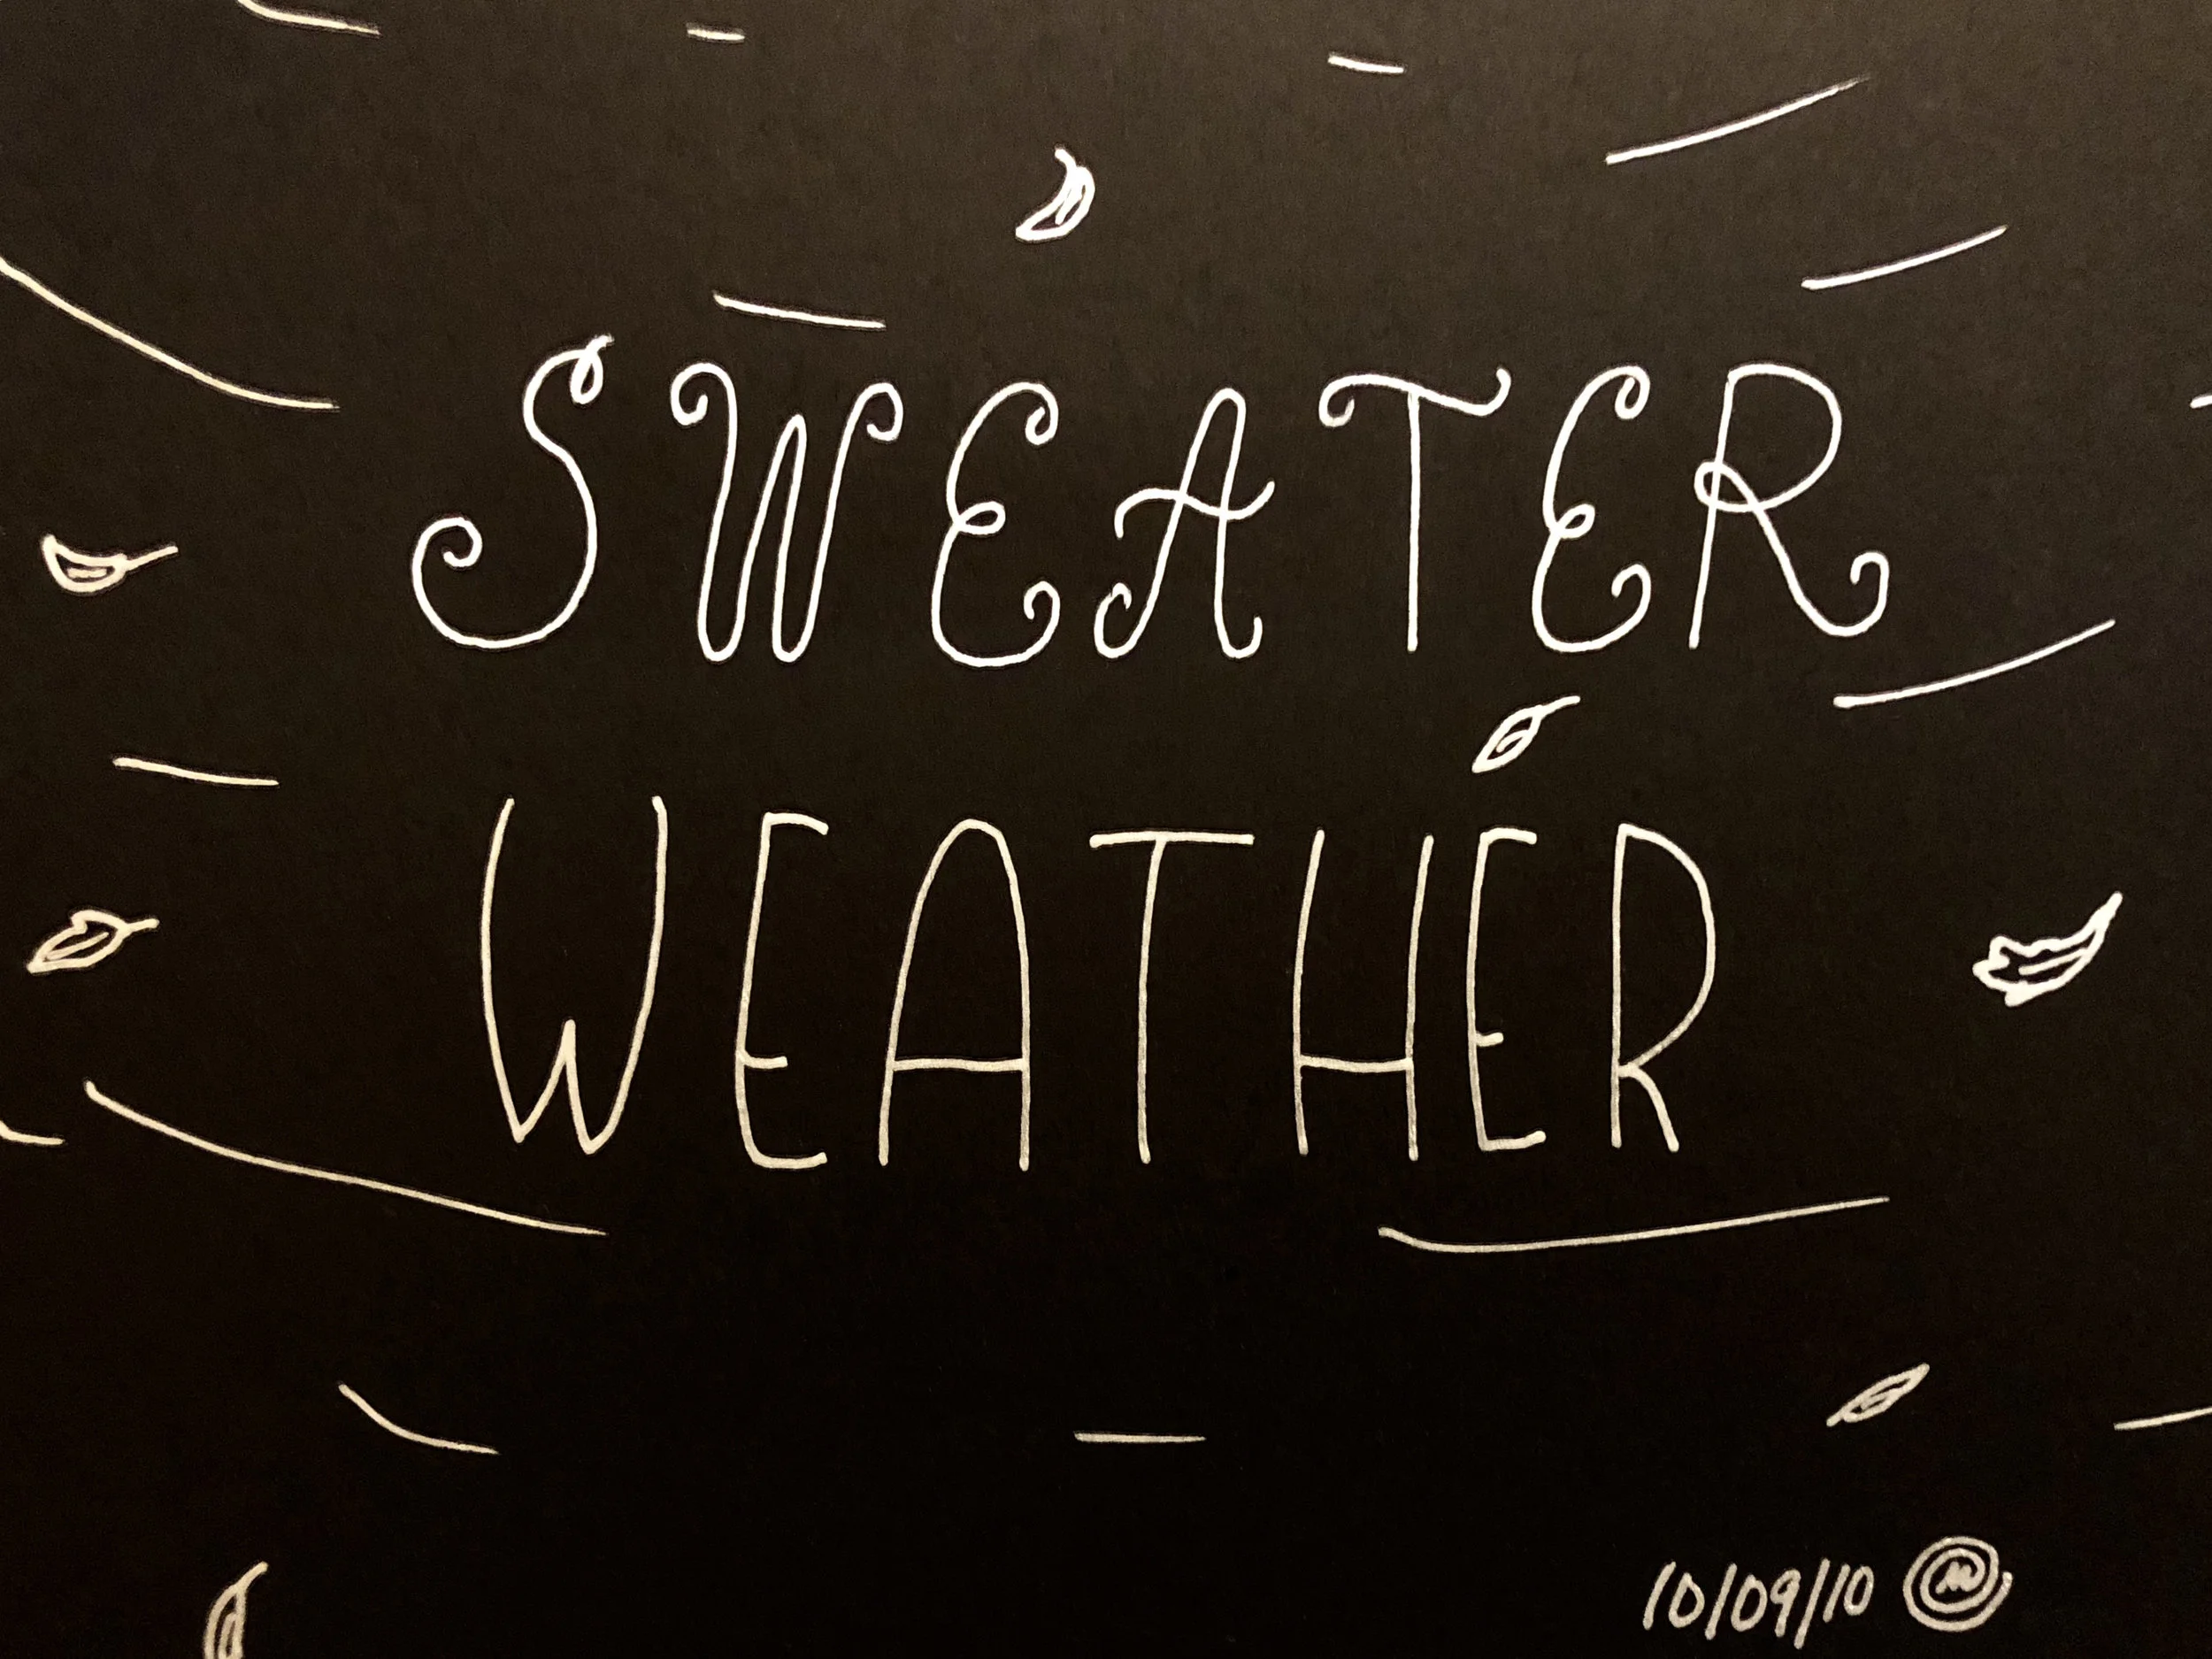 SWEATER
WEATHER
10/09/10